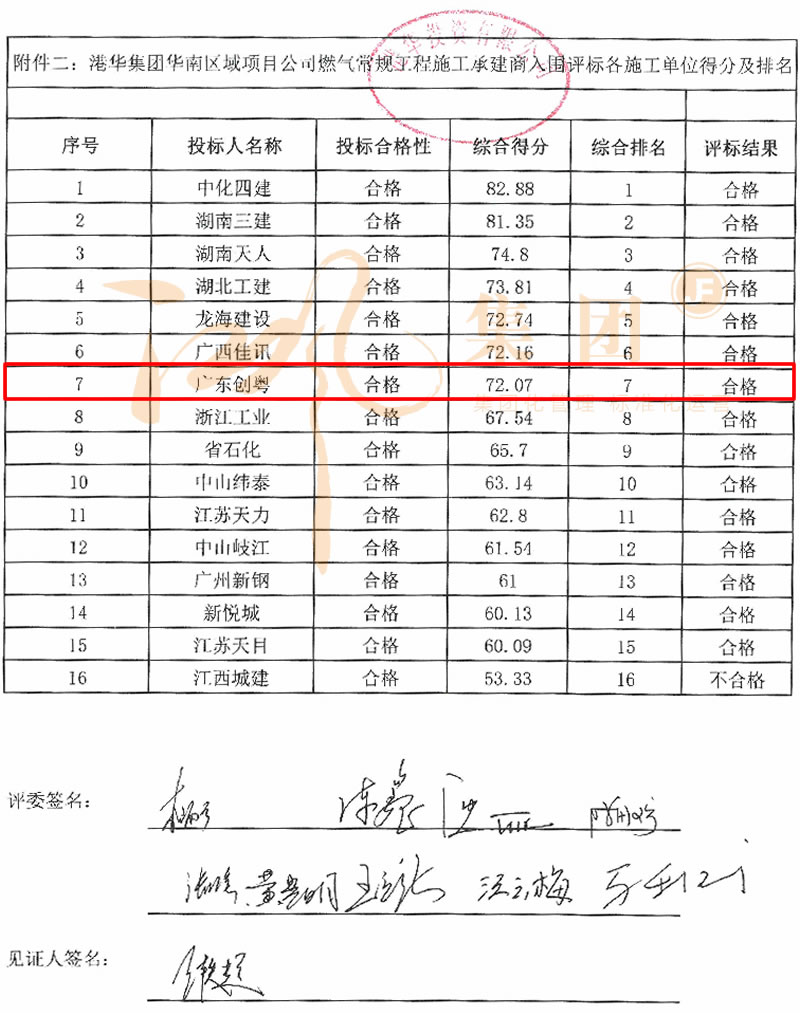 附件二：港华集团华南区域项目公司燃气常规工程施工承建商入围评标各施工单位得分及排名
序号 投标人名称 投标合格性 综合得分 综合排名 评标结果
1 中化四建 合格 82.88 1 合格
2 湖南三建 合格 81.35 2 合格
3 湖南天人 合格 74.8 3 合格
4 湖北工建 合格 73.81 4 合格
5 龙海建设 合格 72.74 5 合格
6 广西佳讯 合格 72.16 6 合格
7 广东创粤 合格 72.07 7 合格
8 浙江工业 合格 67.54 8 合格
9 省石化 合格 65.7 9 合格
10 中山纬泰 合格 63.14 10 合格
11 江苏天力 合格 62.8 11 合格
12 中山岐江 合格 61.54 12 合格
13 广州新钢 合格 61 13 合格
14 新悦城 合格 60.13 14 合格
15 江苏天目 合格 60.09 15 合格
16 江西城建 合格 53.33 16 不合格
集团
集团化管理 标准化运营
评委签名：
见证人签名：